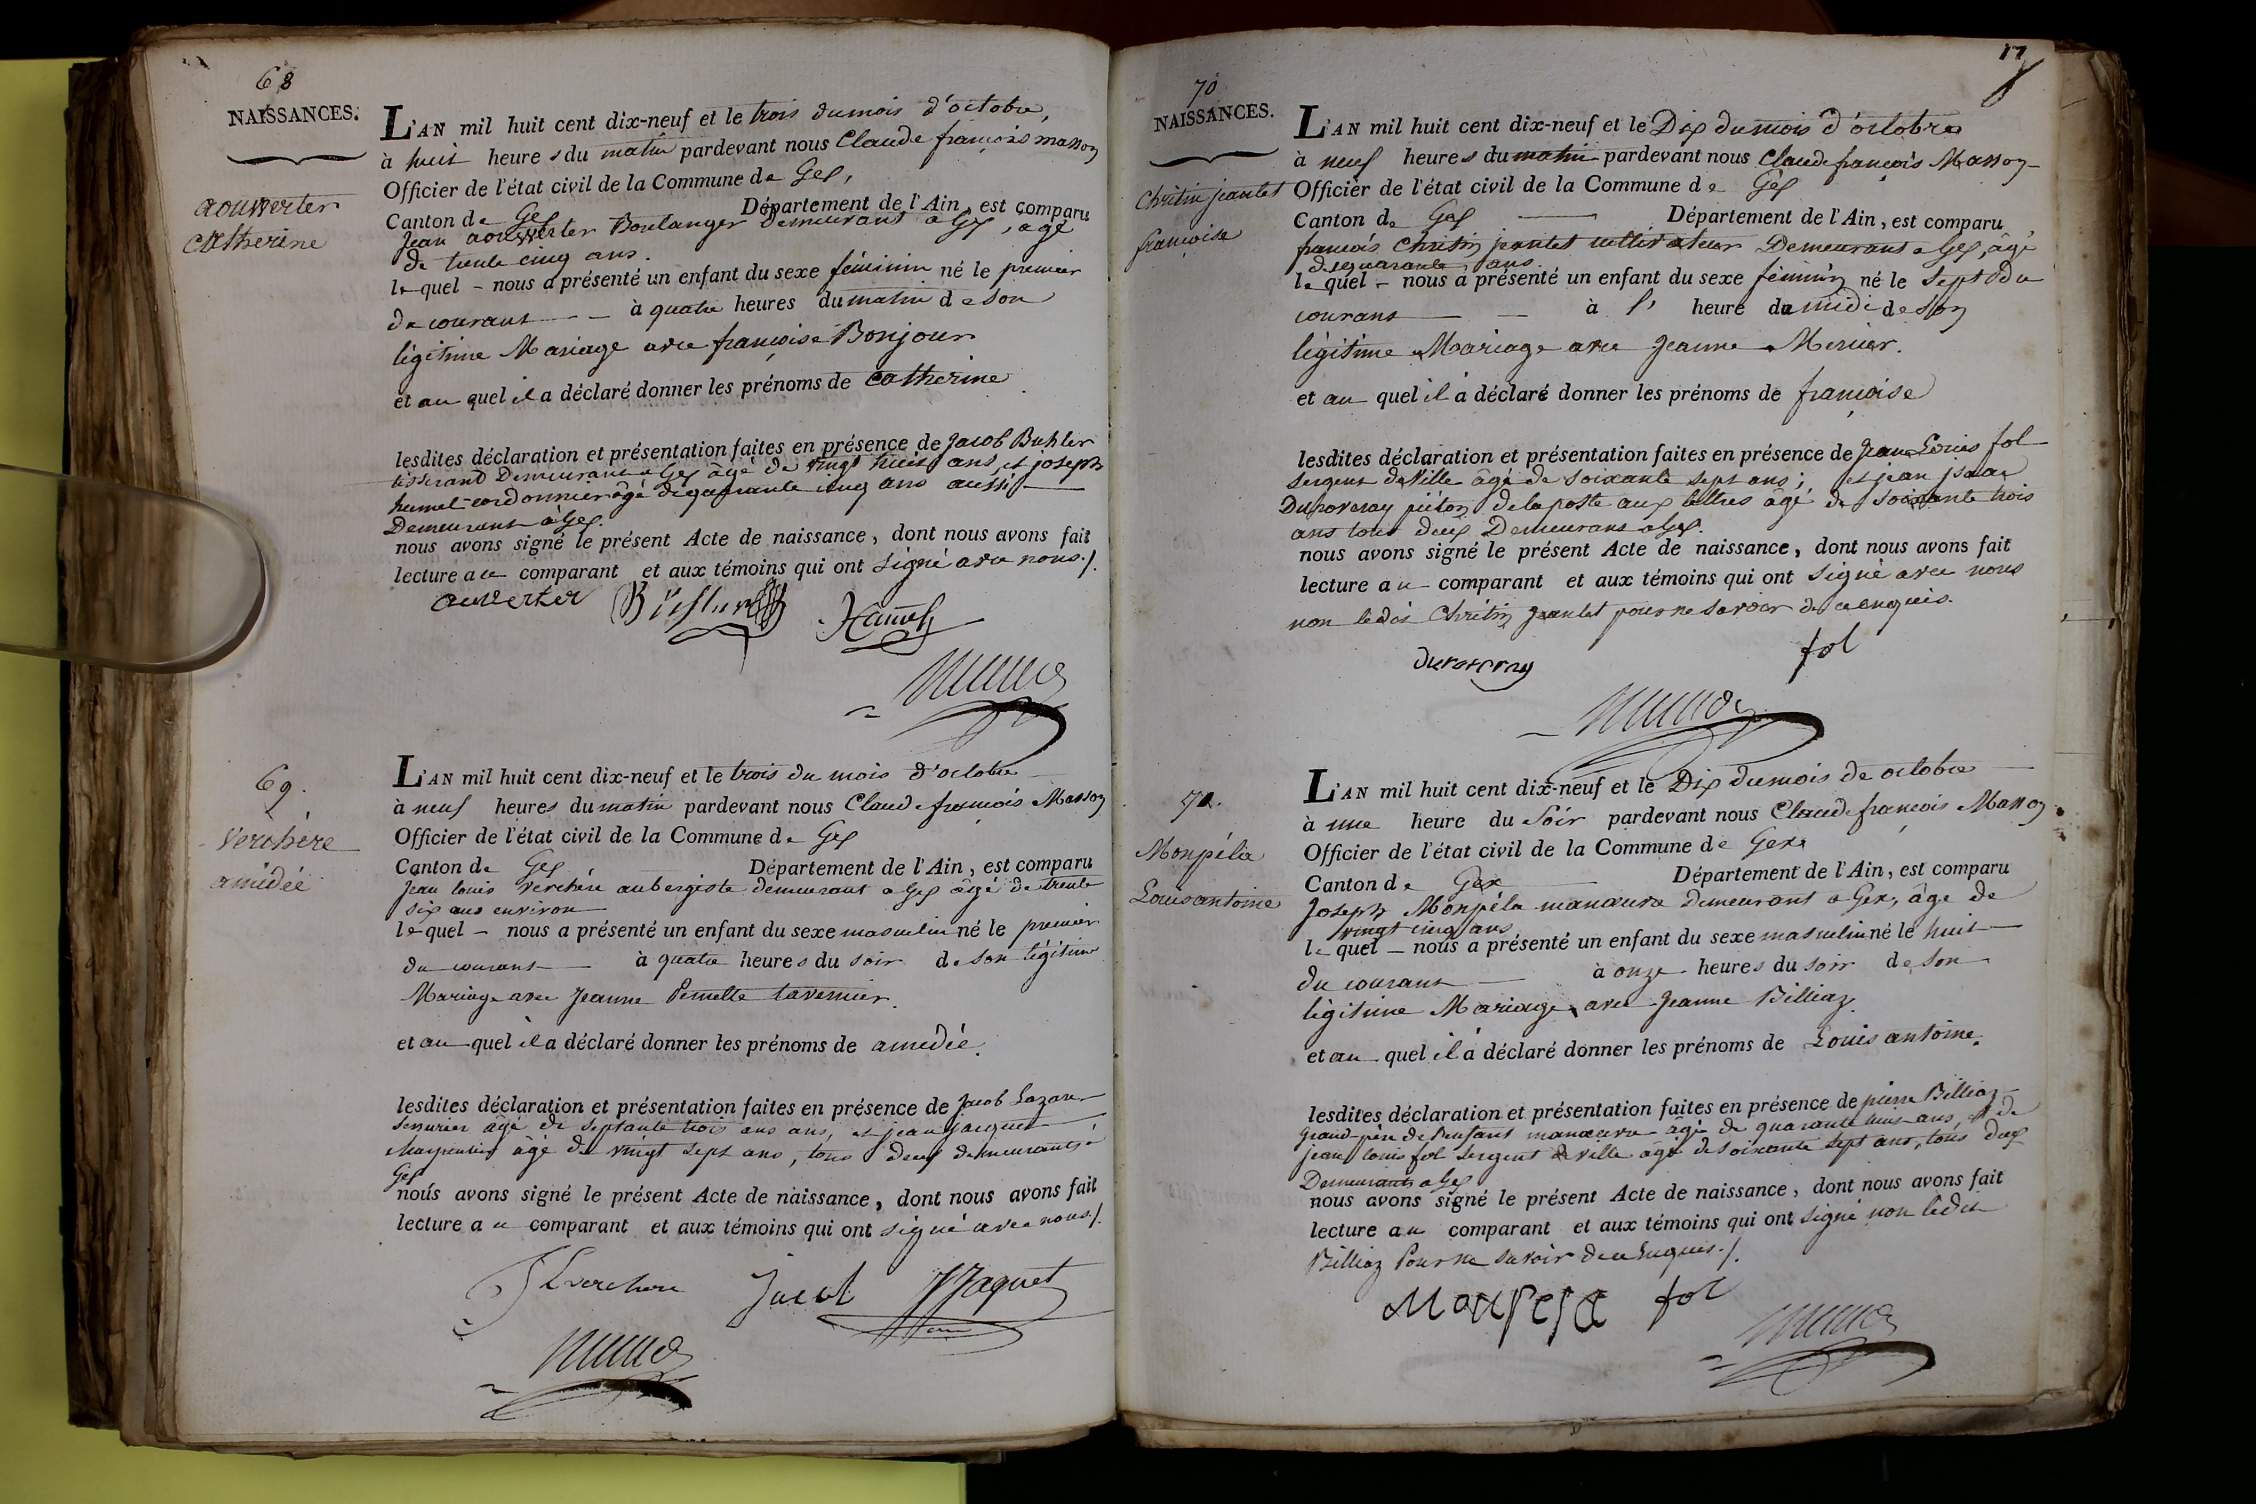 68
NAISSANCES.
aouwerter
Catherine
L'AN mil huit cent dix-neuf et le trois du mois d'octobre,
à huit heures du matin pardevant nous Claude françois Masson
Officier de l'état civil de la Commune de Gex,
Canton de Gex Département de l'Ain, est comparu
Jean aouwerter Boulanger Demeurant à Gex, âgé
de trente cinq ans.
lequel - nous a présenté un enfant du sexe féminin né le premier
du courant - à quatre heures du matin de son
légitime Mariage avec françoise Bonjour
et au quel il a déclaré donner les prénoms de Catherine
lesdites déclaration et présentation faites en présence de Jacob Buhler
tisserand Demeurant a Gex âgé de vingt huit ans, et joseph
humel cordonnier âgé de quarante cinq ans aussi
Demeurant à Gex.
nous avons signé le présent Acte de naissance, dont nous avons fait
lecture au comparant et aux témoins qui ont signé avec nous./.
auwerter
69.
Verchère
amédée
L'AN mil huit cent dix-neuf et le trois du mois d'octobre
à neuf heures du matin pardevant nous Claude françois Masson
Officier de l'état civil de la Commune de Gex
Canton de Gex Département de l'Ain, est comparu
Jean louis Verchère aubergiste demeurant a Gex âgé de trente
six ans environ
lequel - nous a présenté un enfant du sexe masculin né le premier
du courant - à quatre heures du soir de son légitime
Mariage avec Jeanne Pernette tavernier.
et au quel il a déclaré donner les prénoms de amédée.
lesdites déclaration et présentation faites en présence de Jacob Lazare
serrurier âgé de septante trois ans ans, et jean jacquet
charpentier âgé de vingt sept ans, tous deux demeurants à
Gex
nous avons signé le présent Acte de naissance, dont nous avons fait
lecture au comparant et aux témoins qui ont signé avec nous./.
JLverchere Jacob JJaquet
17
70
NAISSANCES.
Chritin jeantet
françoise
L'AN mil huit cent dix-neuf et le Dix du mois d'octobre
à neuf heures du matin pardevant nous Claude françois Masson
Officier de l'état civil de la Commune de Gex
Canton de Gex Département de l'Ain, est comparu
françois Chritin jeantet cultivateur Demeurant a Gex, âgé
de quarante ans.
lequel - nous a présenté un enfant du sexe féminin né le sept du
courant - à l' heure de midi de son
légitime Mariage avec Jeanne Mercier.
et au quel il a déclaré donner les prénoms de françoise
lesdites déclaration et présentation faites en présence de Jean Louis fol
sergent de Ville âgé de soixante sept ans; et jean isaac
Duroveray piéton de la poste aux lettres âgé de soixante trois
ans tous deux Demeurans à Gex.
nous avons signé le présent Acte de naissance, dont nous avons fait
lecture au comparant et aux témoins qui ont signé avec nous
non ledit Chritin jeantet pour ne savoir de ce enquis.
duroveray fol
71.
Monpéla
Louis antoine
L'AN mil huit cent dix-neuf et le Dix du mois de octobre
à une heure du Soir pardevant nous Claude françois Masson
Officier de l'état civil de la Commune de Gex
Canton de Gex Département de l'Ain, est comparu
Joseph Monpéla manœuvre demeurant a Gex, âge de
vingt cinq ans
lequel - nous a présenté un enfant du sexe masculin né le huit
du courant - à onze heures du soir de son
légitime Mariage avec Jeanne Billiaz.
et au quel il a déclaré donner les prénoms de Louis antoine.
lesdites déclaration et présentation faites en présence de pierre Billiaz
grand-père de l'enfant manœuvre âgé de quarante huit ans, et de
jean louis fol sergent de ville âgé de soixante sept ans, tous deux
Demeurants a Gex
nous avons signé le présent Acte de naissance, dont nous avons fait
lecture au comparant et aux témoins qui ont signé non ledit
Billiaz Pour ne savoir de ce Enquis./.
fol